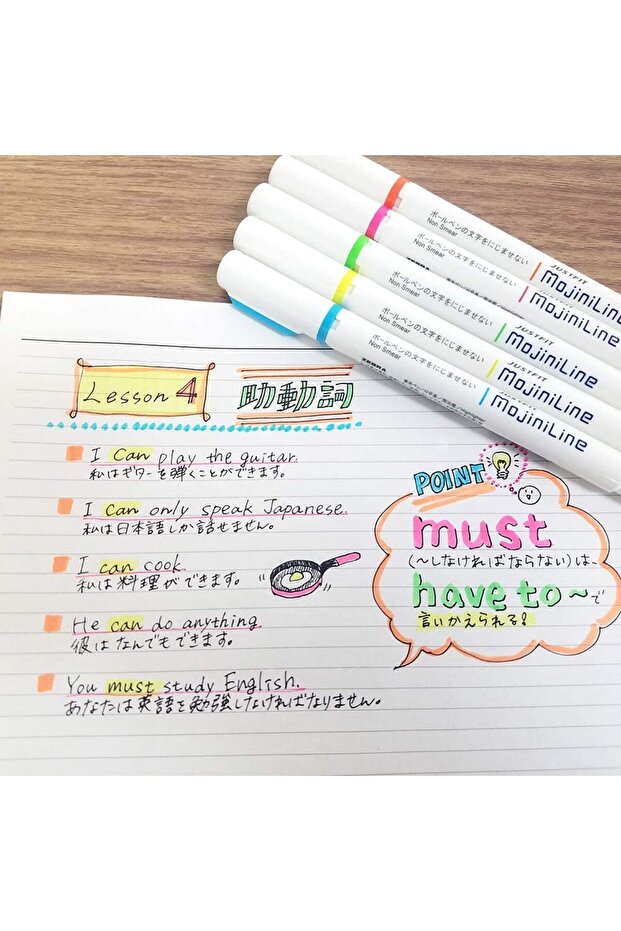 ボールペンの文字をにじませない
Non Smear
JUSTFIT
mojiniLine
ボールペンの文字をにじませない
Non Smear
JUSTFIT
mojiniLine
ボールペンの文字をにじませない
Non Smear
JUSTFIT
mojiniLine
ボールペンの文字をにじませない
Non Smear
JUSTFIT
mojiniLine
ボールペンの文字をにじませない
Non Smear
ZEBRA
JUSTFIT
mojiniLine
Lesson 4
助動詞
I can play the guitar.
私はギターを弾くことができます。
I can only speak Japanese.
私は日本語しか話せません。
I can cook.
私は料理ができます。
He can do anything
彼はなんでもできます。
You must study English.
あなたは英語を勉強しなければなりません。
POINT
must
(〜しなければならない)は、
have to〜で
言いかえられる!